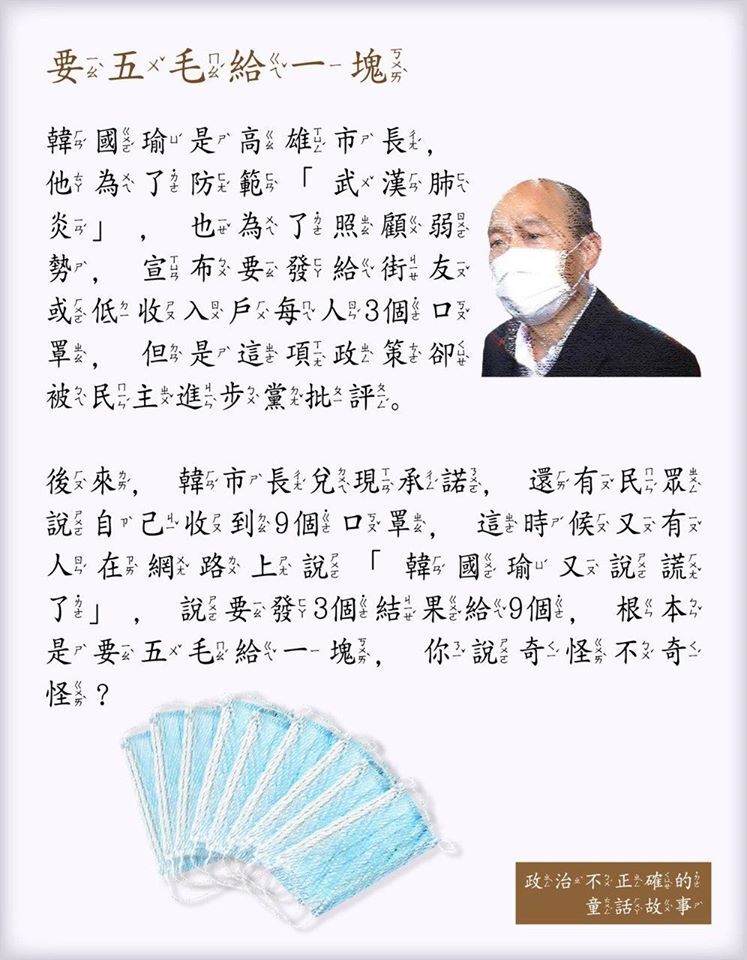 要五毛給一塊
韓國瑜是高雄市長，
他為了防範「武漢肺
炎」，也為了照顧弱
勢，宣布要發給街友
或低收入戶每人3個口
罩，但是這項政策卻
被民主進步黨批評。
後來，韓市長兌現承諾，還有民眾
說自己收到9個口罩，這時候又有
人在網路上說「韓國瑜又說謊
了」，說要發3個結果給9個，根本
是要五毛給一塊，你說奇怪不奇
怪？
政治不正確的
童話故事